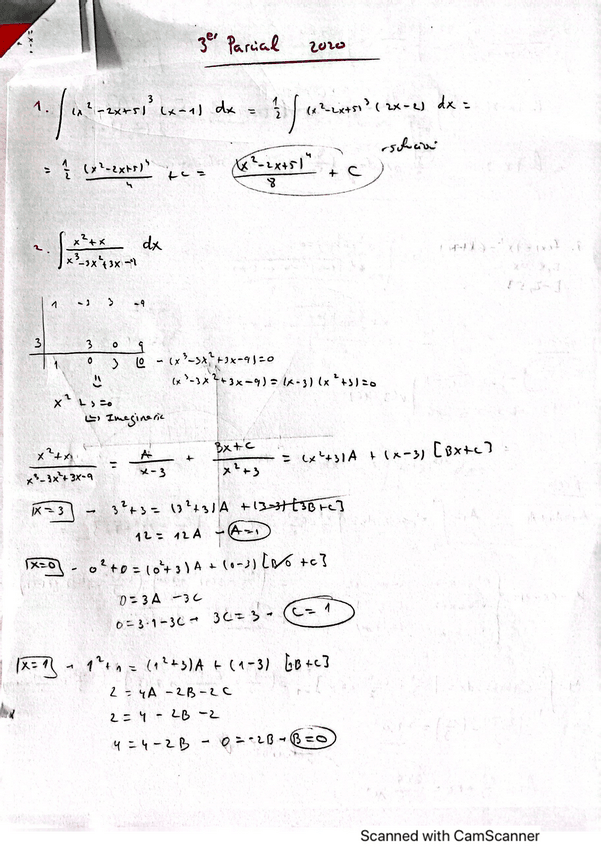 3er Parcial 2020
1. ∫(x²-2x+5)³ (x-1) dx = 1/2 ∫(x²-2x+5)³ (2x-2) dx =
= 1/2 (x²-2x+5)⁴/4 + C = (x²-2x+5)⁴/8 + C
2. ∫ (x²+x)/(x³-3x²+3x-9) dx
1 -3 3 -9
3 3 0 9
1 0 3 0 - (x³-3x²+3x-9)=0
(x³-3x²+3x-9) = (x-3) (x²+3)=0
x²+3=0
↳ Imaginario
(x²+x)/(x³-3x²+3x-9) = A/(x-3) + (Bx+C)/(x²+3) = (x²+3)A + (x-3) [Bx+C]
x=3 - 3²+3 = (3²+3)A + (3-3)[3B+C]
12 = 12A - A=1
x=0 - 0²+0=(0²+3)A + (0-3) [B·0 +C]
0=3A -3C
0=3·1-3C → 3C=3 → C=1
x=1 - 1²+1 = (1²+3)A + (1-3) [B+C]
2 = 4A -2B-2C
2=4 - 2B -2
4=4-2B - 0=-2B → B=0
Scanned with CamScanner